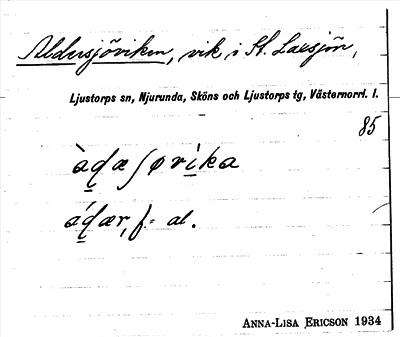 Aldersjöviken, vik i St. Laxsjön,
Ljustorps sn, Njurunda, Sköns och Ljustorps tg, Västernorrl. l.
85
àḍæʃøvìka
áḍær, f. = al.
ANNA-LISA ERICSON 1934